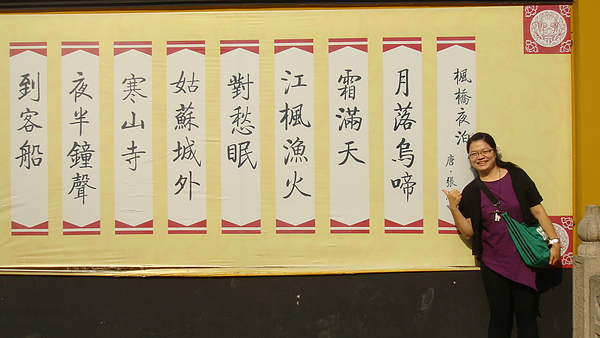 楓橋夜泊
唐·張
月落烏啼
霜滿天
江楓漁火
對愁眠
姑蘇城外
寒山寺
夜半鐘聲
到客船